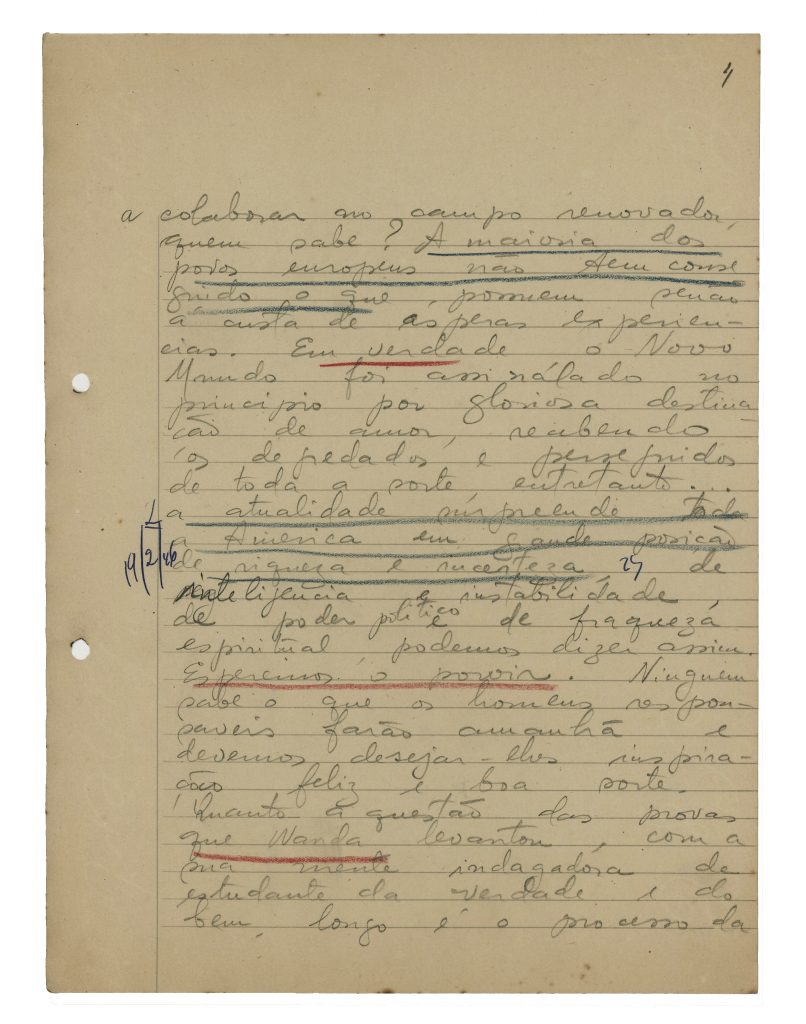 4
a colaborar no campo renovador,
quem sabe? A maioria dos
povos europeus não tem conse
guido o que possuem senão
á custa de asperas experien-
cias. Em verdade o Novo
Mundo foi assinálado no
principio por gloriosa destina-
ção de amor, recebendo
os degredados e perseguidos
de toda a sorte entretanto...
a atualidade surpreende toda
a America em grande posição
de riqueza e incerteza, de
19/2/46
inteligencia e instabilidade,
de poder politico e de fraqueza
espiritual, podemos dizer assim.
Esperemos o porvir. Ninguem
sabe o que os homens respon-
saveis farão amanhã e
devemos desejar-lhes inspira-
ção feliz e boa sorte.
Quanto á questão das provas
que Wanda levantou, com a
sua mente indagadora de
estudante da verdade e do
bem, longo é o processo da